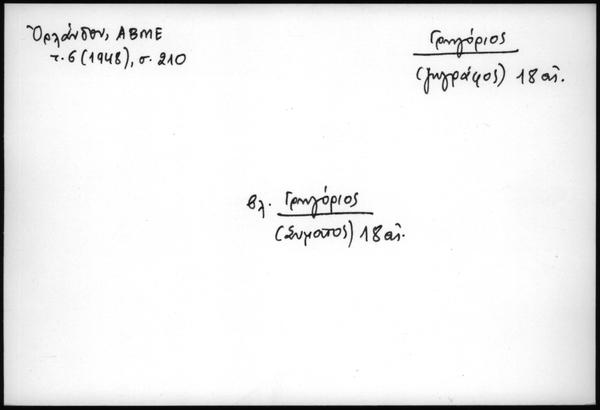 Ὀρλάνδου, ΑΒΜΕ
τ. 6 (1948), σ. 210
Γρηγόριος
(ζωγράφος) 18 αἰ.
βλ. Γρηγόριος
18 αἰ.